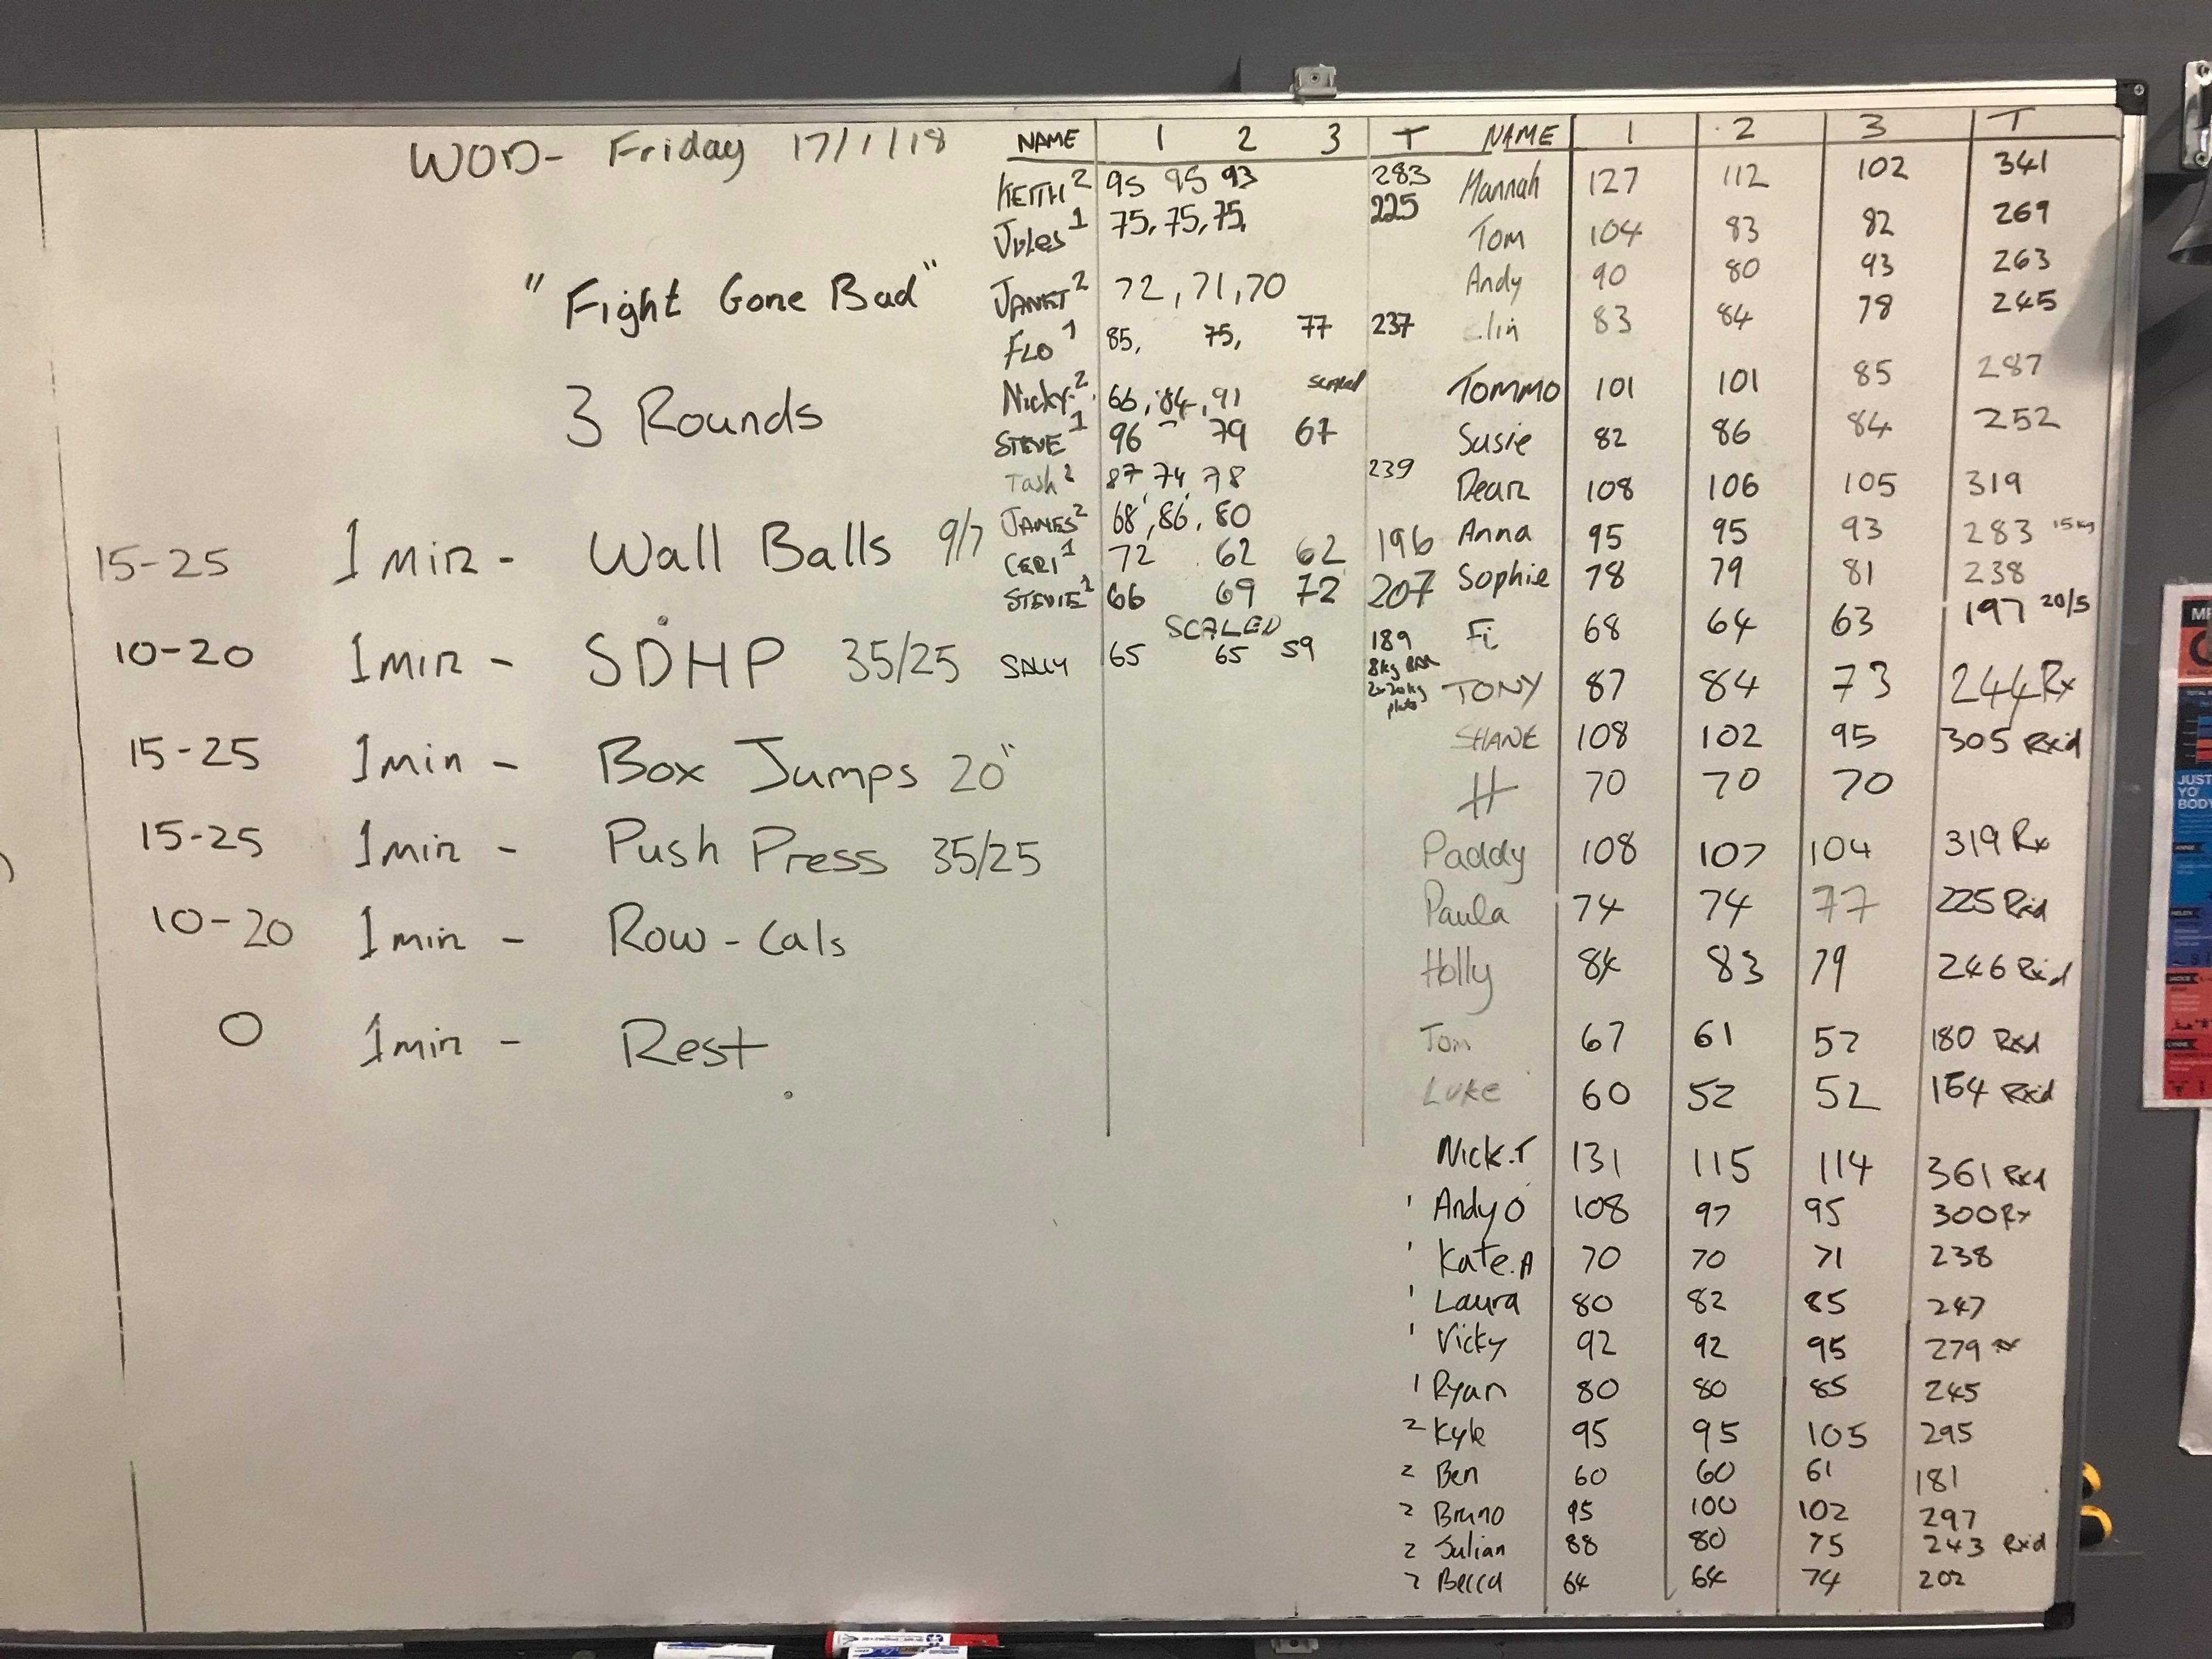 WOD- Friday 17/1/18
"Fight Gone Bad"
3 Rounds
15-25 1 min - Wall Balls 9/7
10-20 1 min - SDHP 35/25
15-25 1 min - Box Jumps 20"
15-25 1 min - Push Press 35/25
10-20 1 min - Row-Cals
0 1 min - Rest
NAME 1 2 3 T
KEITH 2 95 95 93 283
Jules 1 75, 75, 75, 225
JANET 2 72, 71, 70
FLO 1 85, 75, 77 237
Nicky 2 66, 84, 91 scaled
STEVE 1 96 79 67
Tash 2 87 74 78 239
JAMES 2 68, 86, 80
CERI 1 72 62 62 196
STEVIE 2 66 69 72 207
SCALED
SALLY 65 65 59 189
8kg BAR
2x20kg
plate
NAME 1 2 3 T
Hannah 127 112 102 341
Tom 104 83 82 269
Andy 90 80 93 263
lin 83 84 78 245
TOMMO 101 101 85 287
Susie 82 86 84 252
Dean 108 106 105 319
Anna 95 95 93 283 15kg
Sophie 78 79 81 238
Fi 68 64 63 197 20/5
TONY 87 84 73 244 Rx
SHANE 108 102 95 305 Rx'd
H 70 70 70
Paddy 108 107 104 319 Rx
Paula 74 74 77 225 Rxd
Holly 84 83 79 246 Rx'd
Tom 67 61 52 180 Rxd
Luke 60 52 52 164 Rxd
Nick.T 131 115 114 361 Rxd
1 Andy O 108 97 95 300 Rx
1 Kate.A 70 70 71 238
1 Laura 80 82 85 247
1 Vicky 92 92 95 279 rx
1 Ryan 80 80 85 245
2 Kyle 95 95 105 295
2 Ben 60 60 61 181
2 Bruno 95 100 102 297
2 Julian 88 80 75 243 Rxd
2 Becca 64 64 74 202
JUST
YO'
BODY